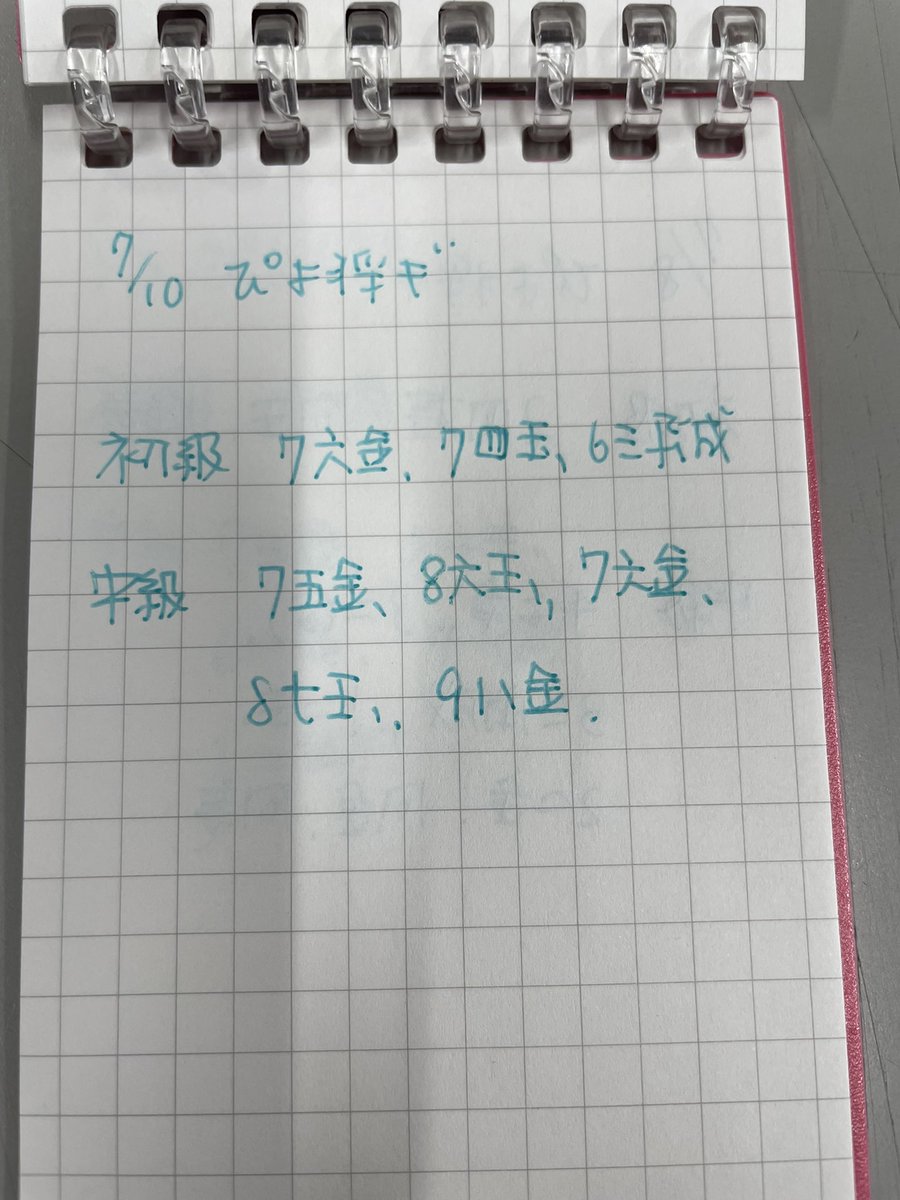 7/10 ぴよ将ギ
初級 7六金、7四玉、6三飛成
中級 7五金、8六玉、7六金、
8七玉、9八金.